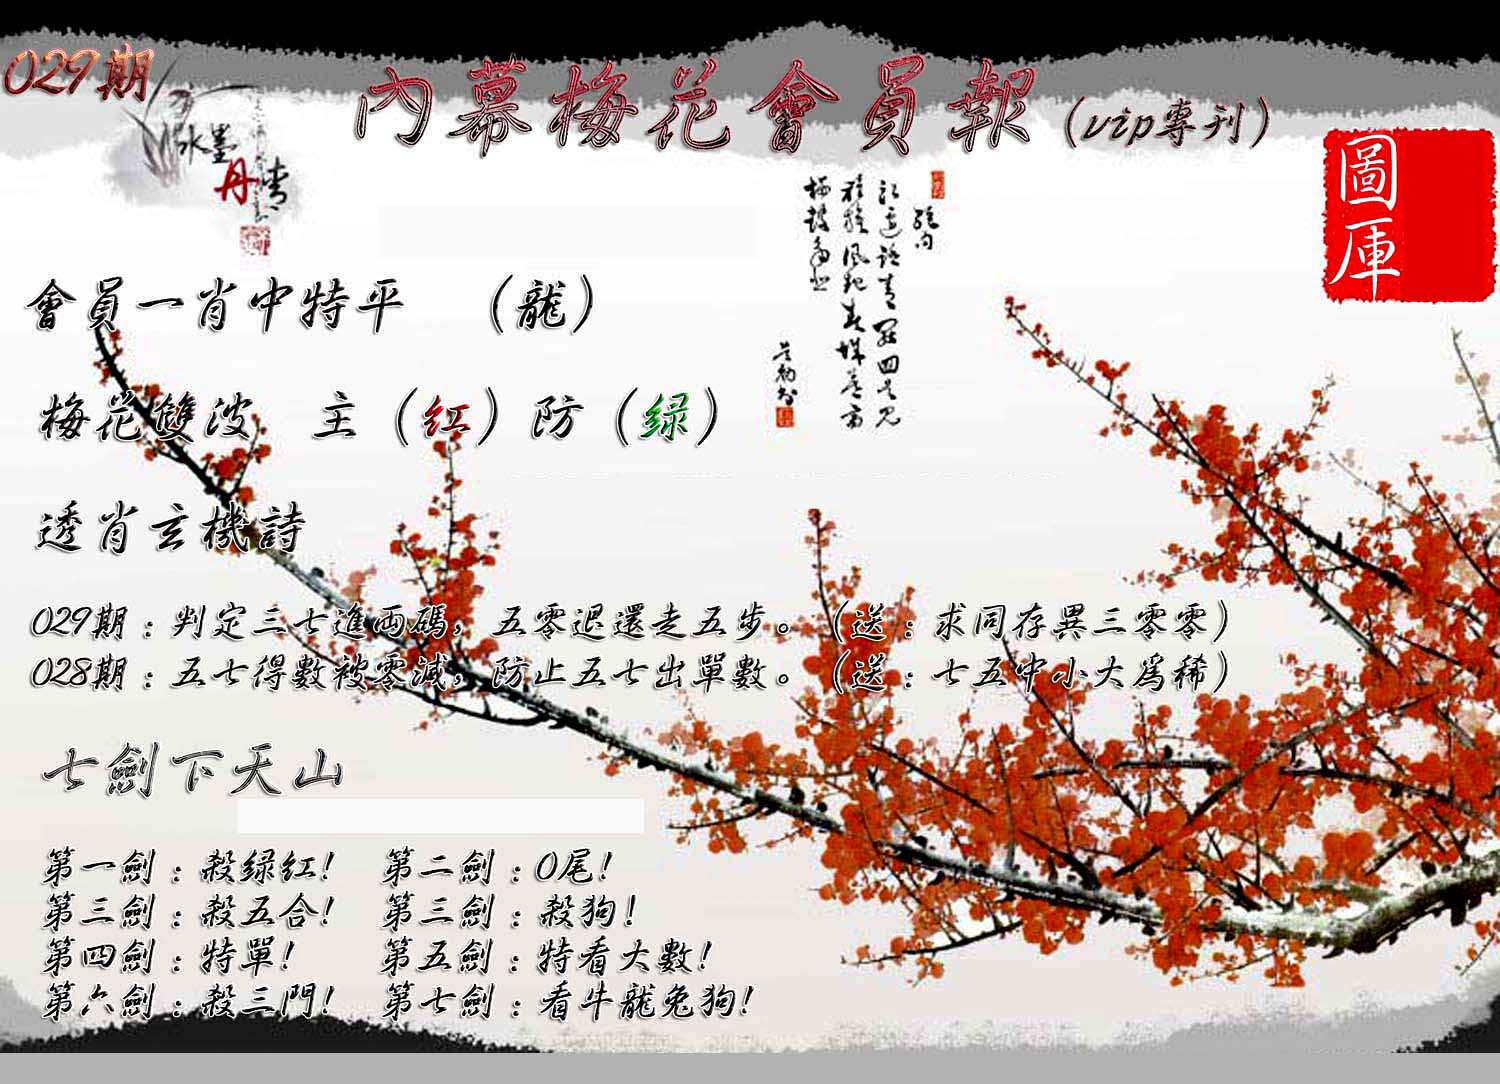 029期
內幕梅花會員報(vip專刊)
水墨
丹青
圖庫
會員一肖中特平 （龍）
梅花雙波 主（红）防（绿）
透肖玄機詩
029期：判定三七進両碼，五零退還走五步。（送：求同存異三零零）
028期：五七得數被零減，防止五七出單數。（送：七五中小大爲稀）
七劍下天山
第一劍：殺绿红! 第二劍：0尾!
第三劍：殺五合! 第三劍：殺狗!
第四劍：特單! 第五劍：特看大數!
第六劍：殺三門! 第七劍：看牛龍兔狗!